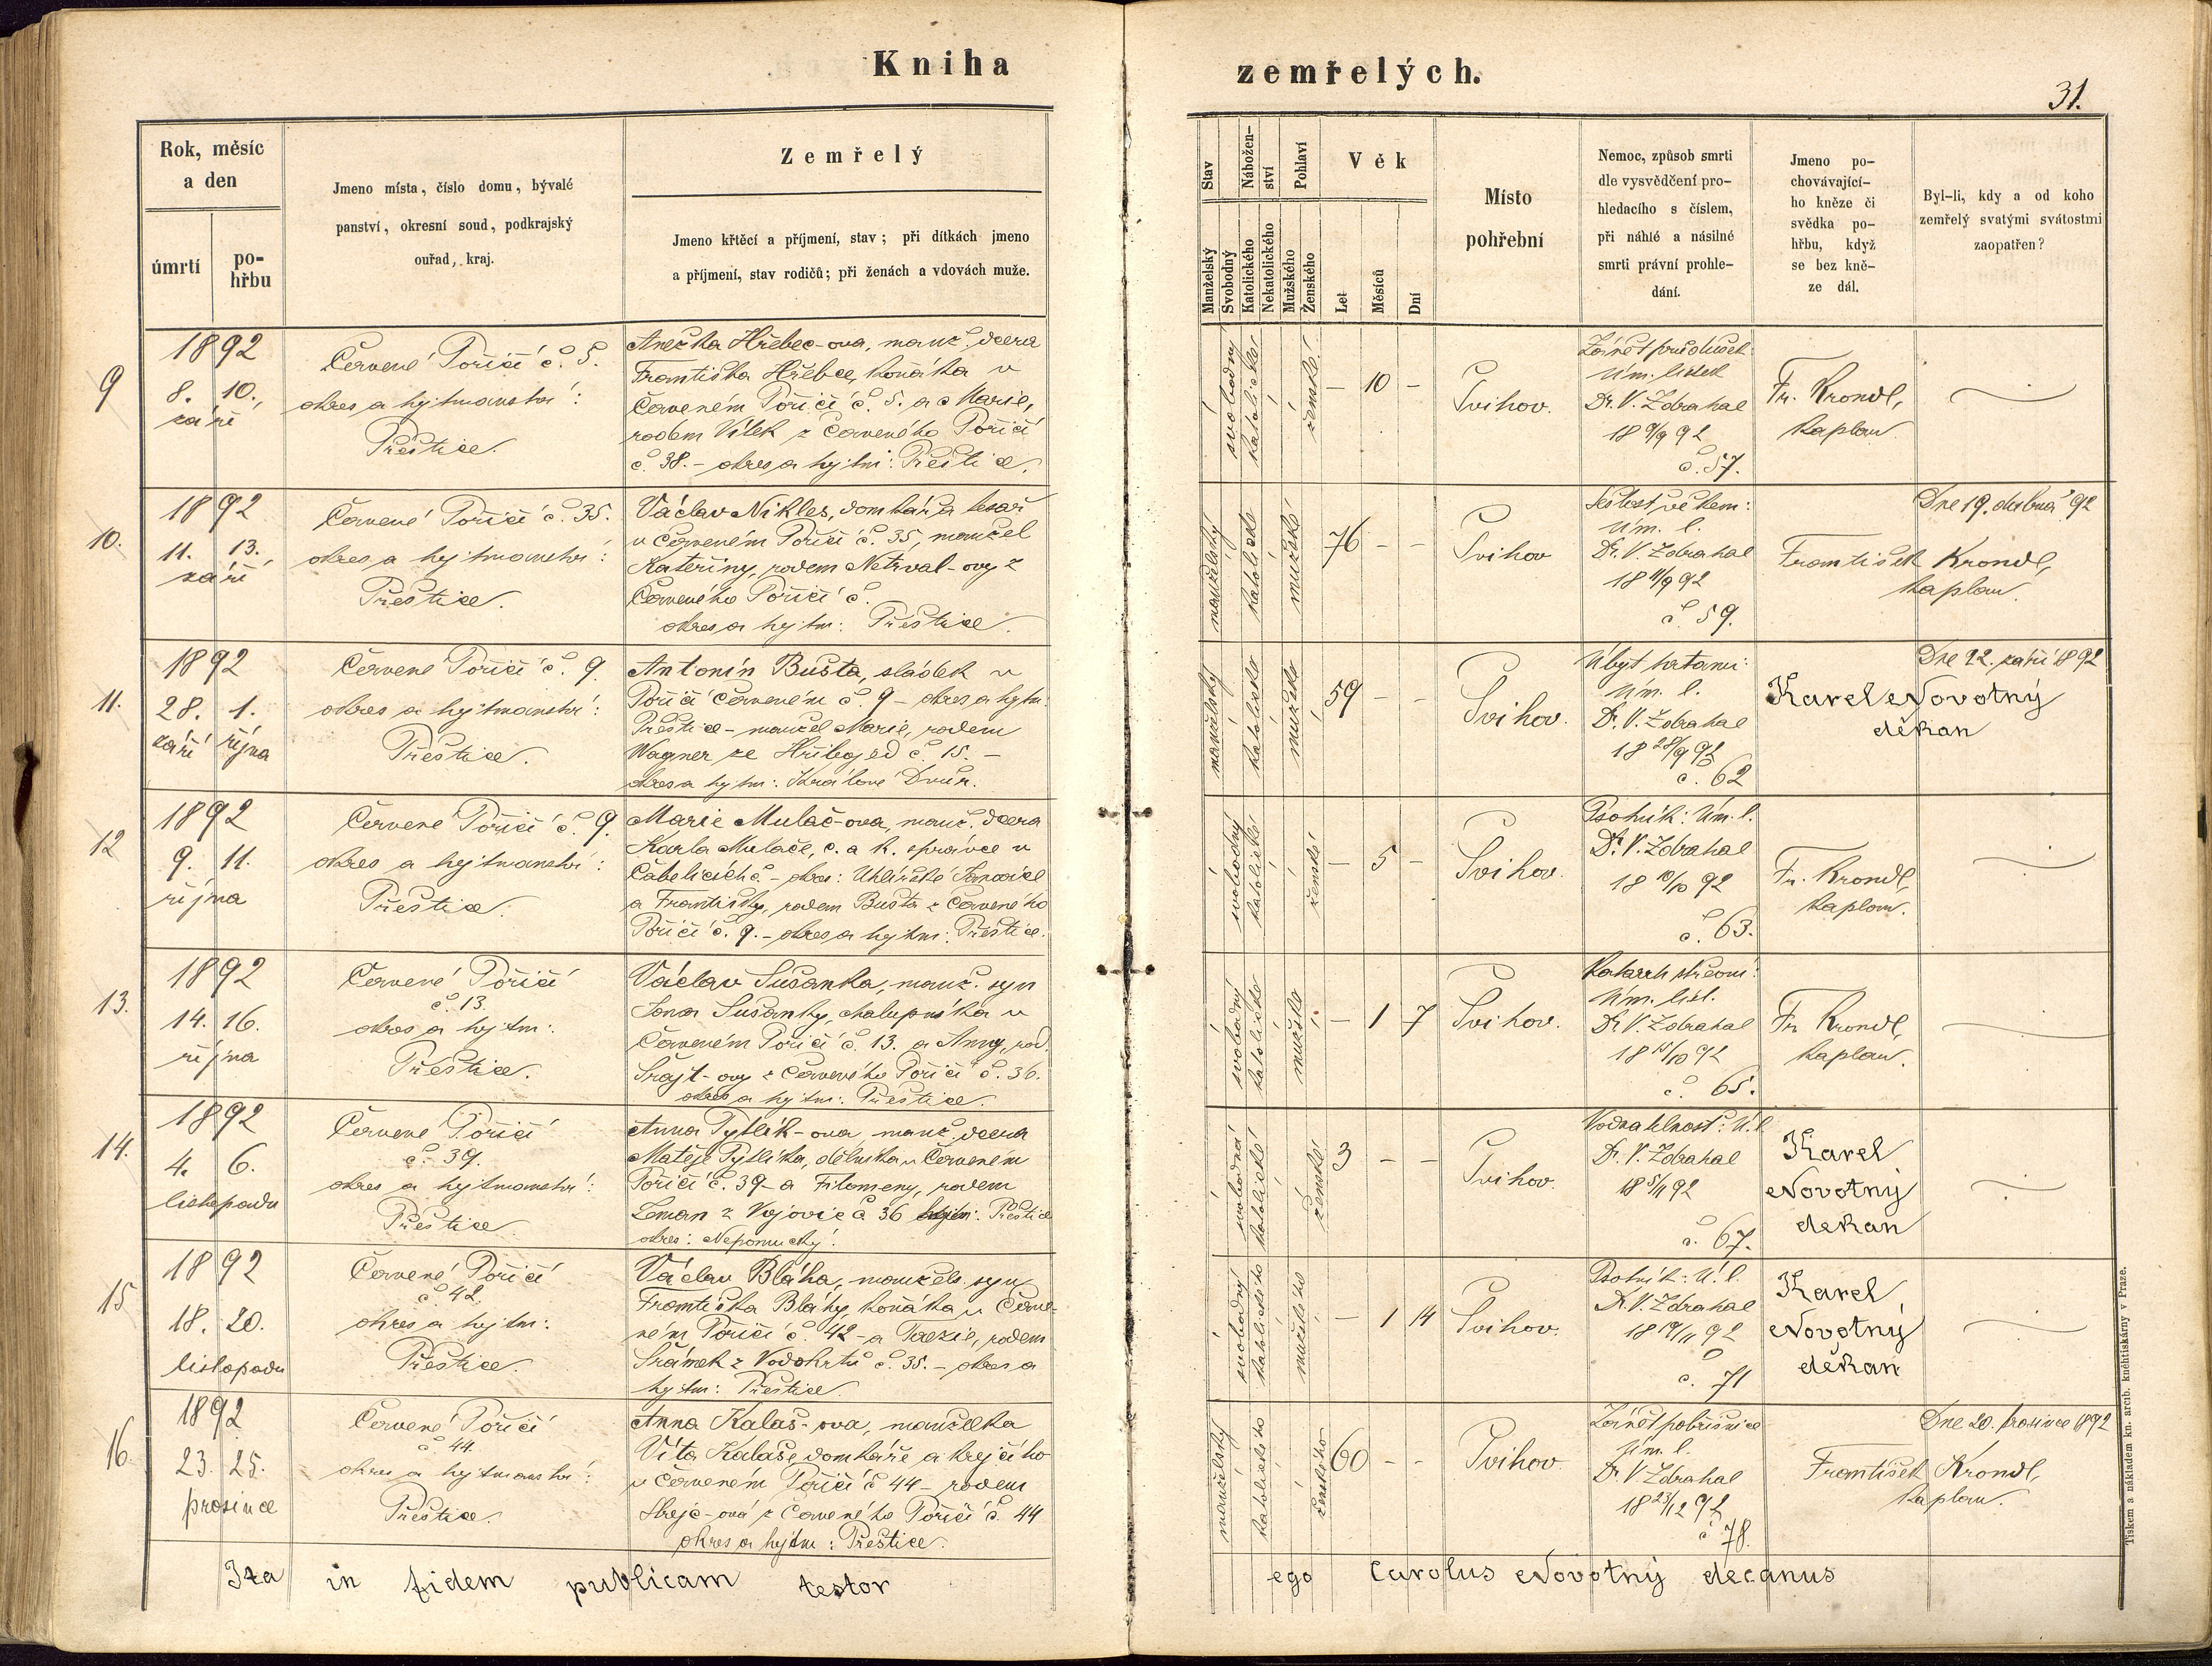 Kniha
zemřelých.
31.
Rok, měsíc
a den
úmrtí
po-
hřbu
Jmeno místa, číslo domu, bývalé
panství, okresní soud, podkrajský
ouřad, kraj.
Zemřelý
Jmeno křtěcí a příjmení, stav; při dítkách jmeno
a příjmení, stav rodičů; při ženách a vdovách muže.
Stav
Nábožen-
ství
Pohlaví
Věk
Manželský
Svobodný
Katolického
Nekatolického
Mužského
Ženského
Let
Měsíců
Dní
Místo
pohřební
Nemoc, způsob smrti
dle vysvědčení pro-
hledacího s číslem,
při náhlé a násilné
smrti právní prohle-
dání.
Jmeno po-
chovávající-
ho kněze či
svědka po-
hřbu, když
se bez kně-
ze dál.
Byl-li, kdy a od koho
zemřelý svatými svátostmi
zaopatřen?
9
1892
8. 10.
září
Červené Poříčí č. 5.
okres a hejtmanství:
Přeštice.
Anežka Hřebec-ova, manž. dcera
Františka Hřebce, koňáka v
Červeném Poříčí č. 5. a Marie,
rodem Vílek z Červeného Poříčí
č. 38. - okres a hejtm: Přeštice.
svobodný
katolické
ženské
- 10 -
Švihov.
Zánět průdušek
Úm. lístek
Dr. V. Zdrahal
18 9/9 92
č. 57.
Fr. Krondl,
kaplan.
10.
1892
11. 13.
září
Červené Poříčí č. 35.
okres a hejtmanství:
Přeštice.
Václav Nikles, domkář a tesař
v Červeném Poříčí č. 35, manžel
Kateřiny, rodem Netrval-ovy z
Červeného Poříčí č.
okres a hejtm: Přeštice.
manželský
katolické
mužské
76 - -
Švihov
Sešlost věkem:
Úm. l.
Dr. V. Zdrahal
18 11/9 92
č. 59.
František Krondl,
kaplan.
Dne 19. dubna 92
11.
1892
28. 1.
září října
Červené Poříčí č. 9.
okres a hejtmanství:
Přeštice.
Antonín Bušta, sládek v
Poříčí Červeném č. 9 - okres a hejtm:
Přeštice - manžel Marie, rodem
Wagner ze Hřibojed č. 15. -
okres a hejtm: Králové Dvůr.
manželský
katolické
mužské
59 - -
Švihov.
Úm. l.
Dr. V. Zdrahal
18 28/9 92
č. 62
Karel Novotný
děkan
Dne 22. září 1892
12
1892
9. 11.
října
Červené Poříčí č. 9.
okres a hejtmanství:
Přeštice.
Marie Mulač-ova, manž. dcera
Karla Mulače, c. a k. správce v
Čabelicích č. - okres: Uhlířské Janovice
a Františky, rodem Bušta z Červeného
Poříčí č. 9. - okres a hejtm: Přeštice.
svobodný
katolické
ženské
- 5 -
Švihov.
Psotník: Úm. l.
Dr. V. Zdrahal
18 10/10 92
č. 63.
Fr. Krondl,
kaplan.
13.
1892
14. 16.
října
Červené Poříčí
č. 13.
okres a hejtm:
Přeštice.
Václav Sušanka, manž. syn
Jana Sušanky, chalupníka v
Červeném Poříčí č. 13. a Anny, rod.
Šrajt-ovy z Červeného Poříčí č. 36.
okres a hejtm: Přeštice.
svobodný
katolické
mužské
- 1 7
Švihov.
Katarrh střevní:
Úm. líst.
Dr. V. Zdrahal
18 15/10 92
č. 65.
Fr. Krondl,
kaplan.
14.
1892
4. 6.
listopadu
Červené Poříčí
č. 39.
okres a hejtmanství:
Přeštice
Anna Pytlík-ova, manž. dcera
Matěje Pytlíka, dělníka v Červeném
Poříčí č. 39 - a Filomeny, rodem
Zeman z Vojovic č. 36 hejtm: Přeštice
okres: Nepomucký.
svobodná
katolické
ženské
3 - -
Švihov.
Vodnatelnost: Ú. l.
Dr. V. Zdrahal
18 5/11 92
č. 67.
Karel
Novotný
děkan
15
1892
18. 20.
listopadu
Červené Poříčí
č. 42.
okres a hejtm:
Přeštice.
Václav Bláha, manžels. syn
Františka Bláhy, koňáka v Červe-
ném Poříčí č. 42 - a Terezie, rodem
Šrámek z Vodokrt č. 35. - okres a
hejtm: Přeštice.
svobodný
katolického
mužského
- 1 14
Švihov.
Psotník: Ú. l.
Dr. V. Zdrahal
18 19/11 92
č. 71
Karel
Novotný
děkan
16.
1892
23. 25.
prosince
Červené Poříčí
č. 44.
okres a hejtmanství:
Přeštice.
Anna Kalaš-ova, manželka
Víta Kalaše, domkáře a krejčího
v Červeném Poříčí č. 44 - rodem
z Červeného Poříčí č. 44
okres a hejtm: Přeštice.
manželský
katolického
ženského
60 - -
Švihov.
Zánět pobřišnice
Úm. l.
Dr. V. Zdrahal
18 23/12 92
č. 78.
František Krondl,
kaplan.
Dne 20. prosince 1892
Ita in fidem publicam testor
ego Carolus Novotný decanus
Tiskem a nákladem kn. arcib. knihtiskárny v Praze.